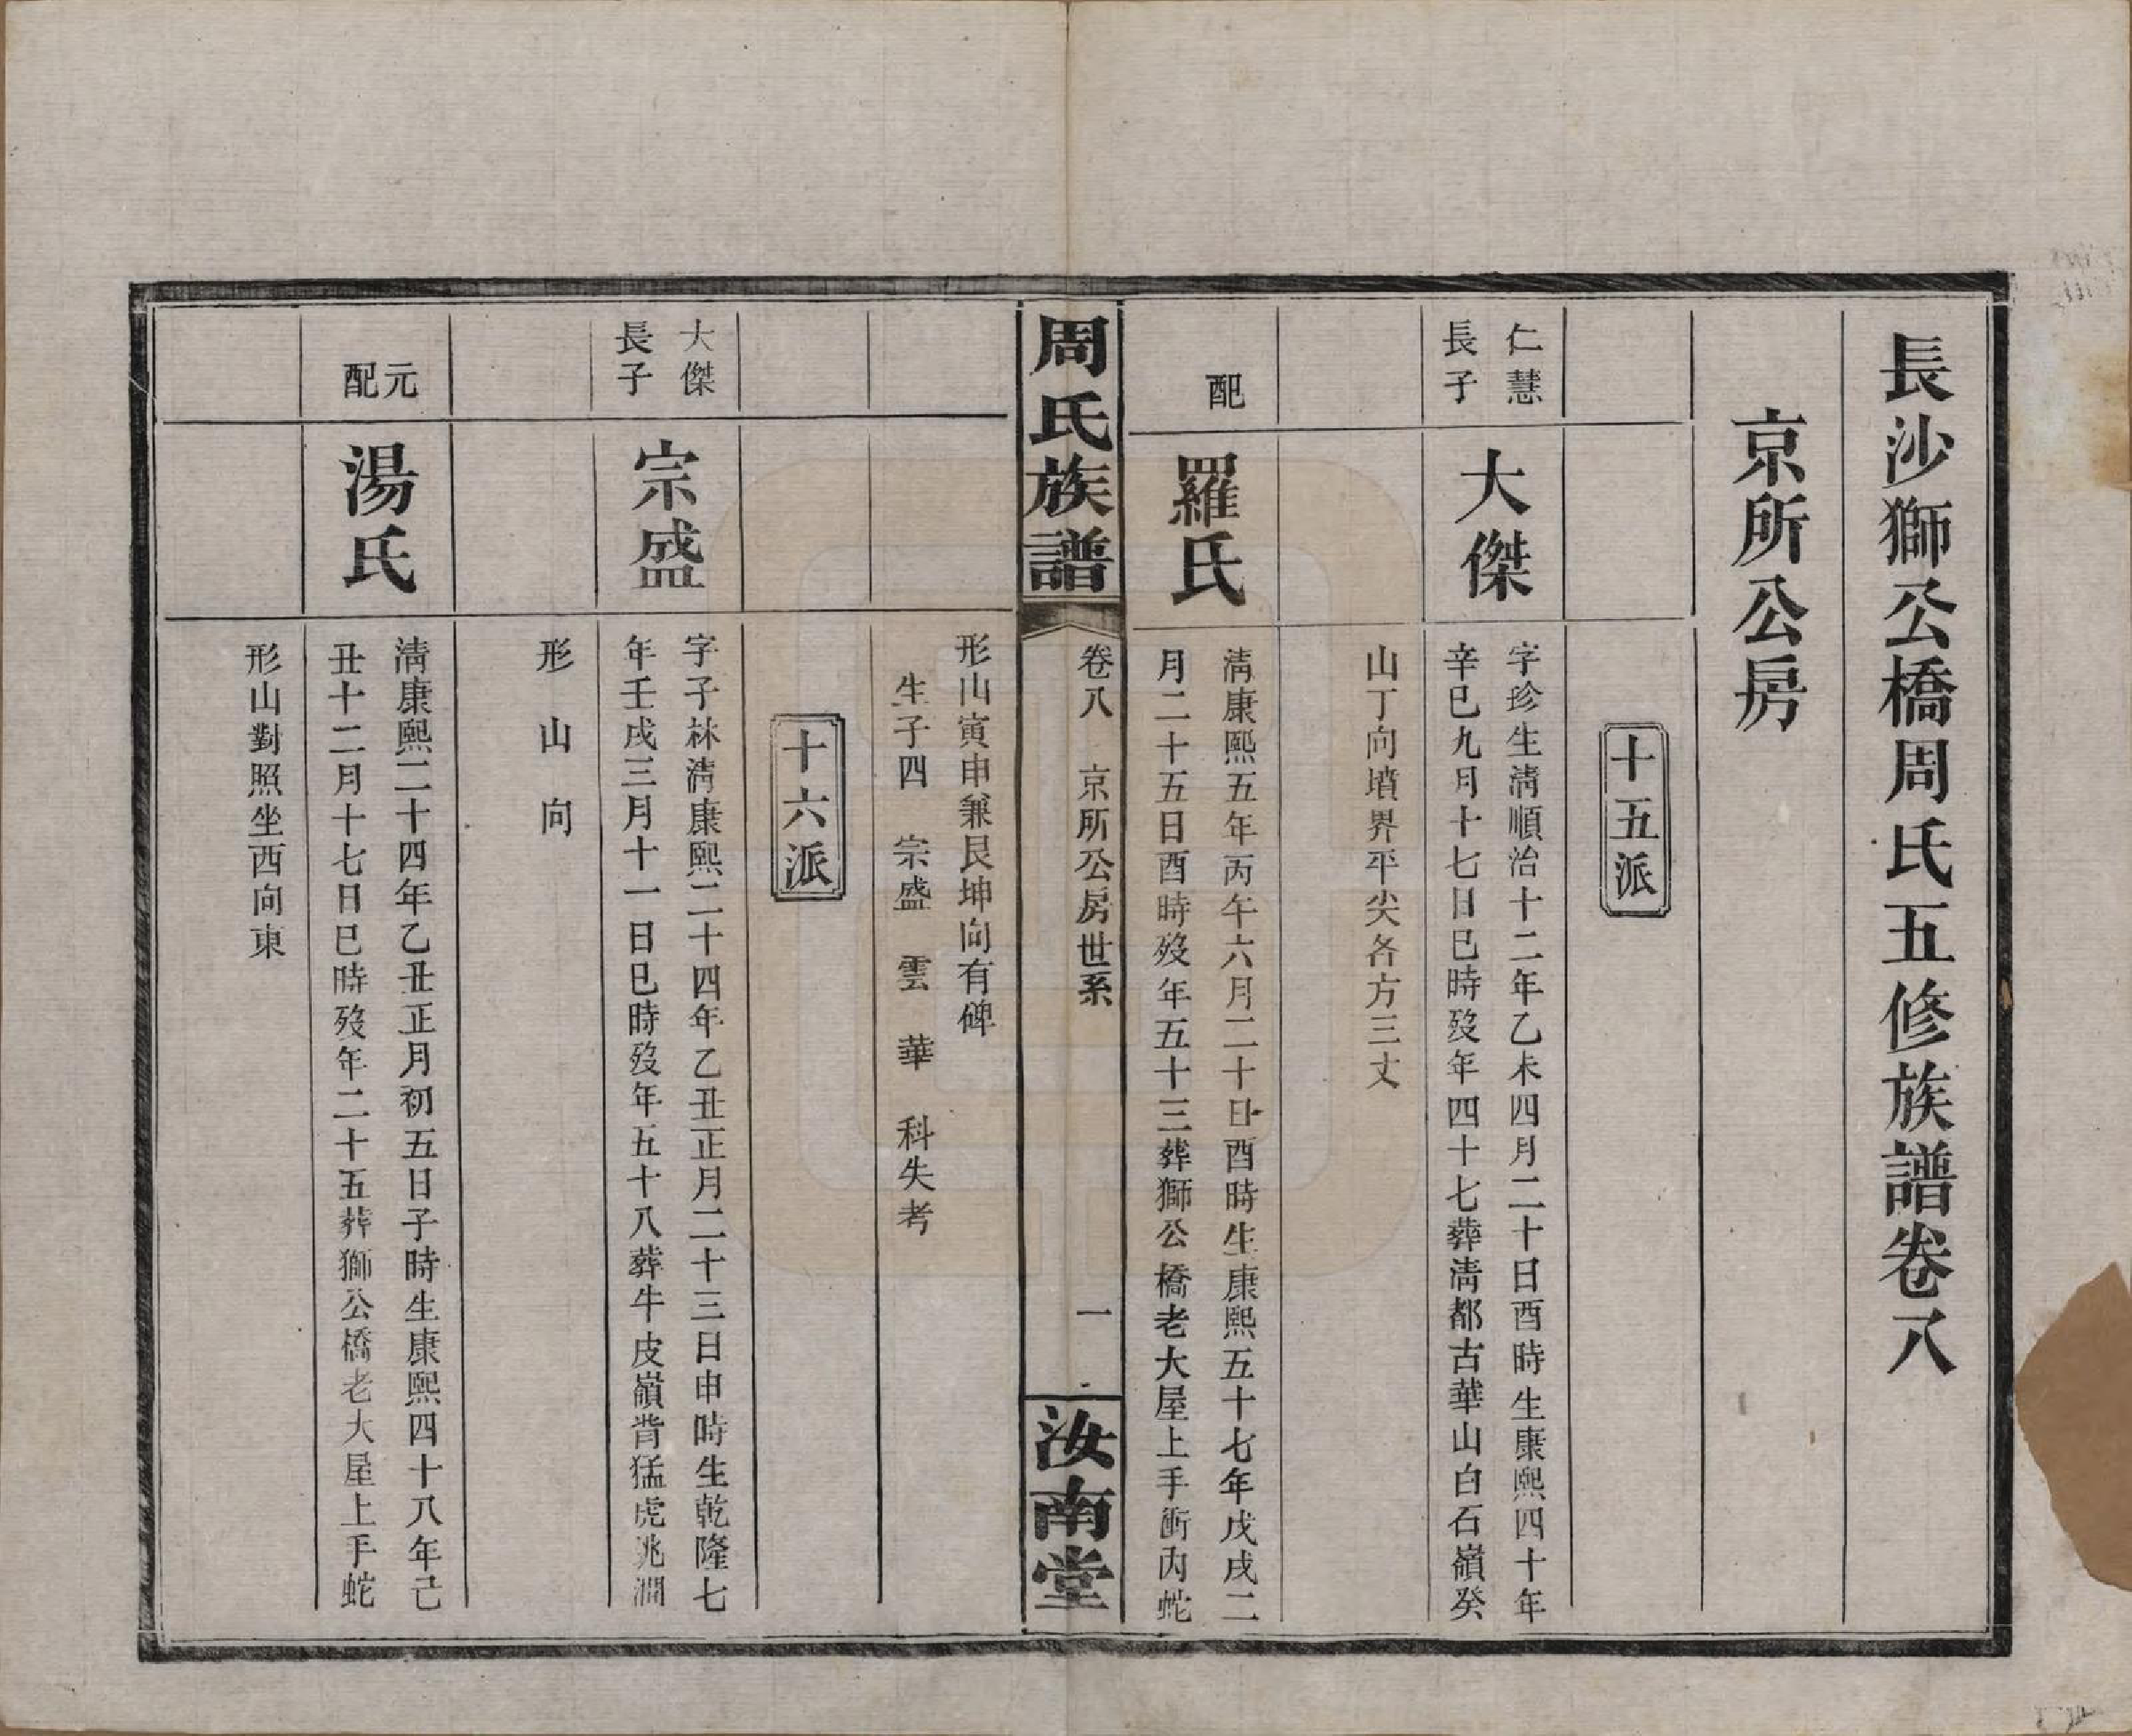 長沙獅公橋周氏五修族譜卷八
京所公房
十五派
仁慧
長子
大傑
字珍生淸順治十二年乙未四月二十日酉時生康熙四十年
辛巳九月十七日巳時歿年四十七葬淸都古華山白石嶺癸
山丁向墳界平尖各方三丈
配
羅氏
淸康熙五年丙午六月二十日酉時生康熙五十七年戊戌二
月二十五日酉時歿年五十三葬獅公橋老大屋上手衝內蛇
周氏族譜
卷八
京所公房世系
一
汝南堂
形山寅申兼艮坤向有碑
生子四 宗盛 雲 華 科失考
十六派
大傑
長子
宗盛
字子林淸康熙二十四年乙丑正月二十三日申時生乾隆七
年壬戌三月十一日巳時歿年五十八葬牛皮嶺背猛虎跳澗
形山向
元
配
湯氏
淸康熙二十四年乙丑正月初五日子時生康熙四十八年己
丑十二月十七日巳時歿年二十五葬獅公橋老大屋上手蛇
形山對照坐西向東